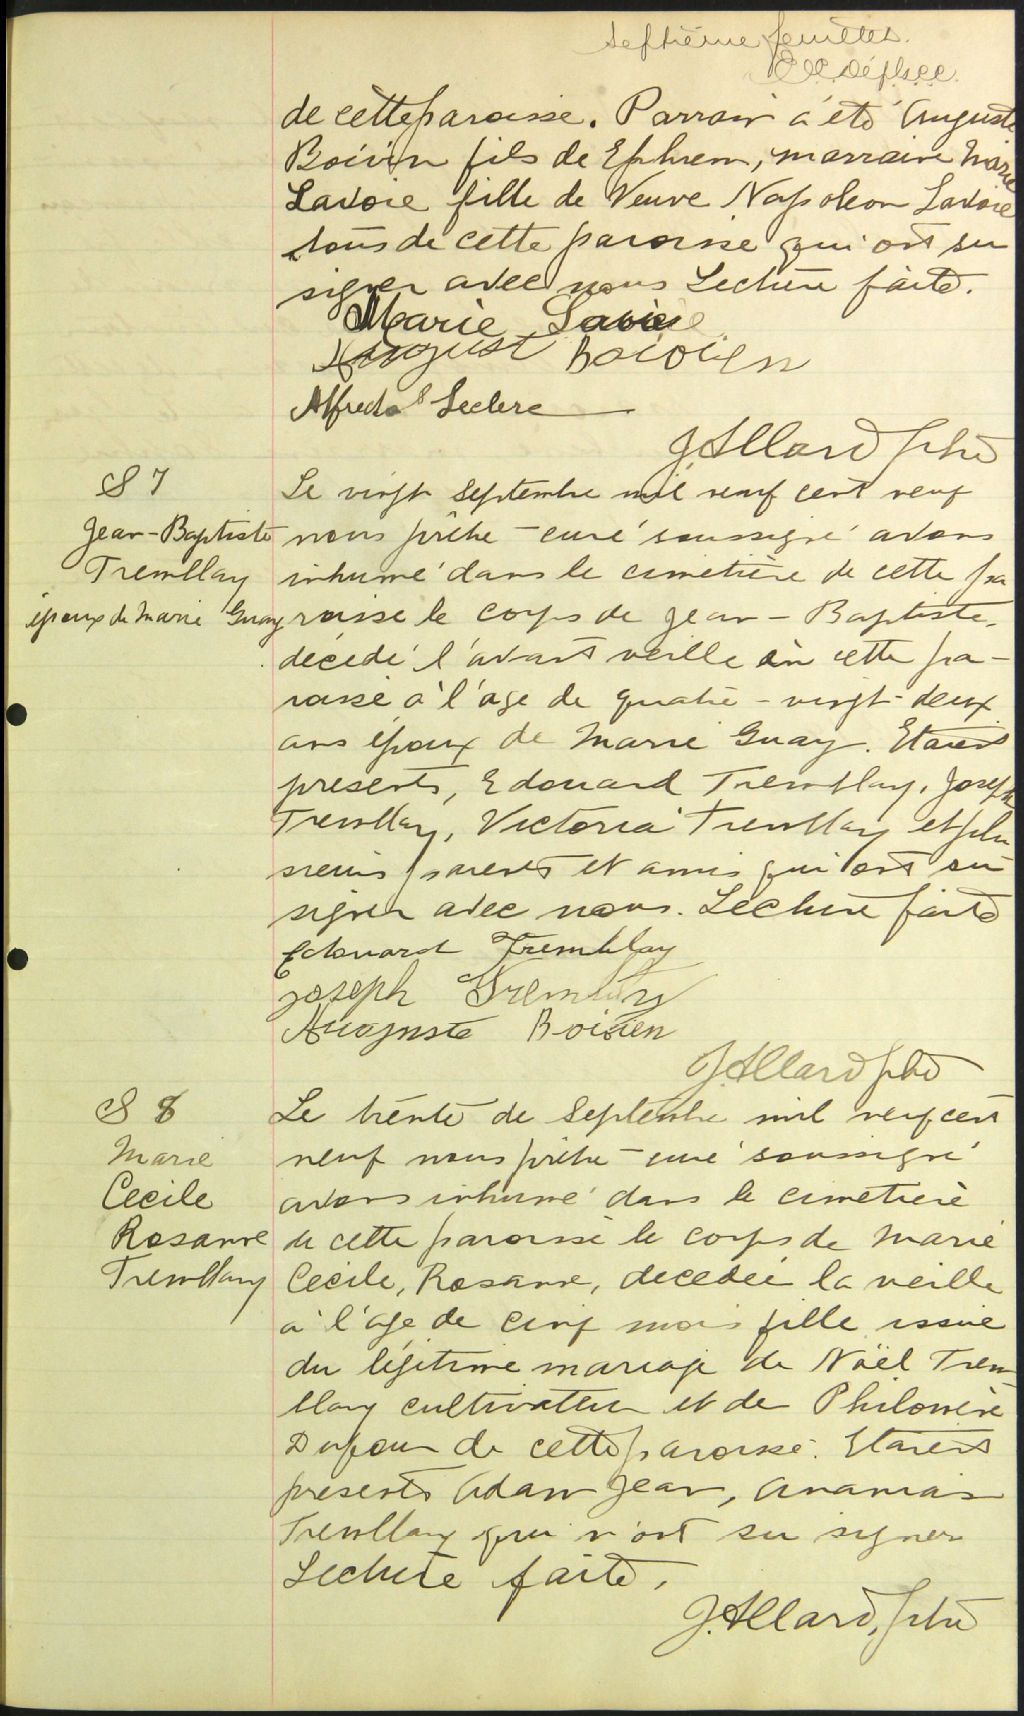 Septième feuillet.
de cette paroisse. Parrain a été Auguste
Boivin fils de Ephrem, marraine Marie
Lavoie fille de Veuve Napoleon Lavoie
tous de cette paroisse qui ont su
signer avec nous Lecture faite.
Marie Lavoie
August Boivin
Alfred Leclerc
J. Allard ptre
S 7
Jean-Baptiste
Tremblay
époux de Marie Guay
Le vingt septembre mil neuf cent neuf
nous prêtre-curé soussigné avons
inhumé dans le cimetière de cette pa
roisse le corps de Jean-Baptiste
décédé l'avant veille en cette pa-
roisse à l'age de quatre-vingt-deux
ans époux de Marie Guay. Etaient
presents, Edouard Tremblay, Joseph
Tremblay, Victoria Tremblay et plu
sieurs parents et amis qui ont su
signer avec nous. Lecture faite
Edouard Tremblay
Joseph Tremblay
Auguste Boivien
J. Allard ptre
S 8
Marie
Cecile
Rosanne
Tremblay
Le trente de Septembre mil neuf cent
neuf nous prêtre-curé soussigné
avons inhumé dans le cimetière
de cette paroisse le corps de Marie
Cecile, Rosanne, decedée la veille
à l'age de cinq mois fille issue
du légitime mariage de Noël Trem-
blay cultivateur et de Philomène
Dufour de cette paroisse. Etaient
presents Adam Jean, Ananias
Tremblay qui n'ont su signer
Lecture faite.
J. Allard, ptre